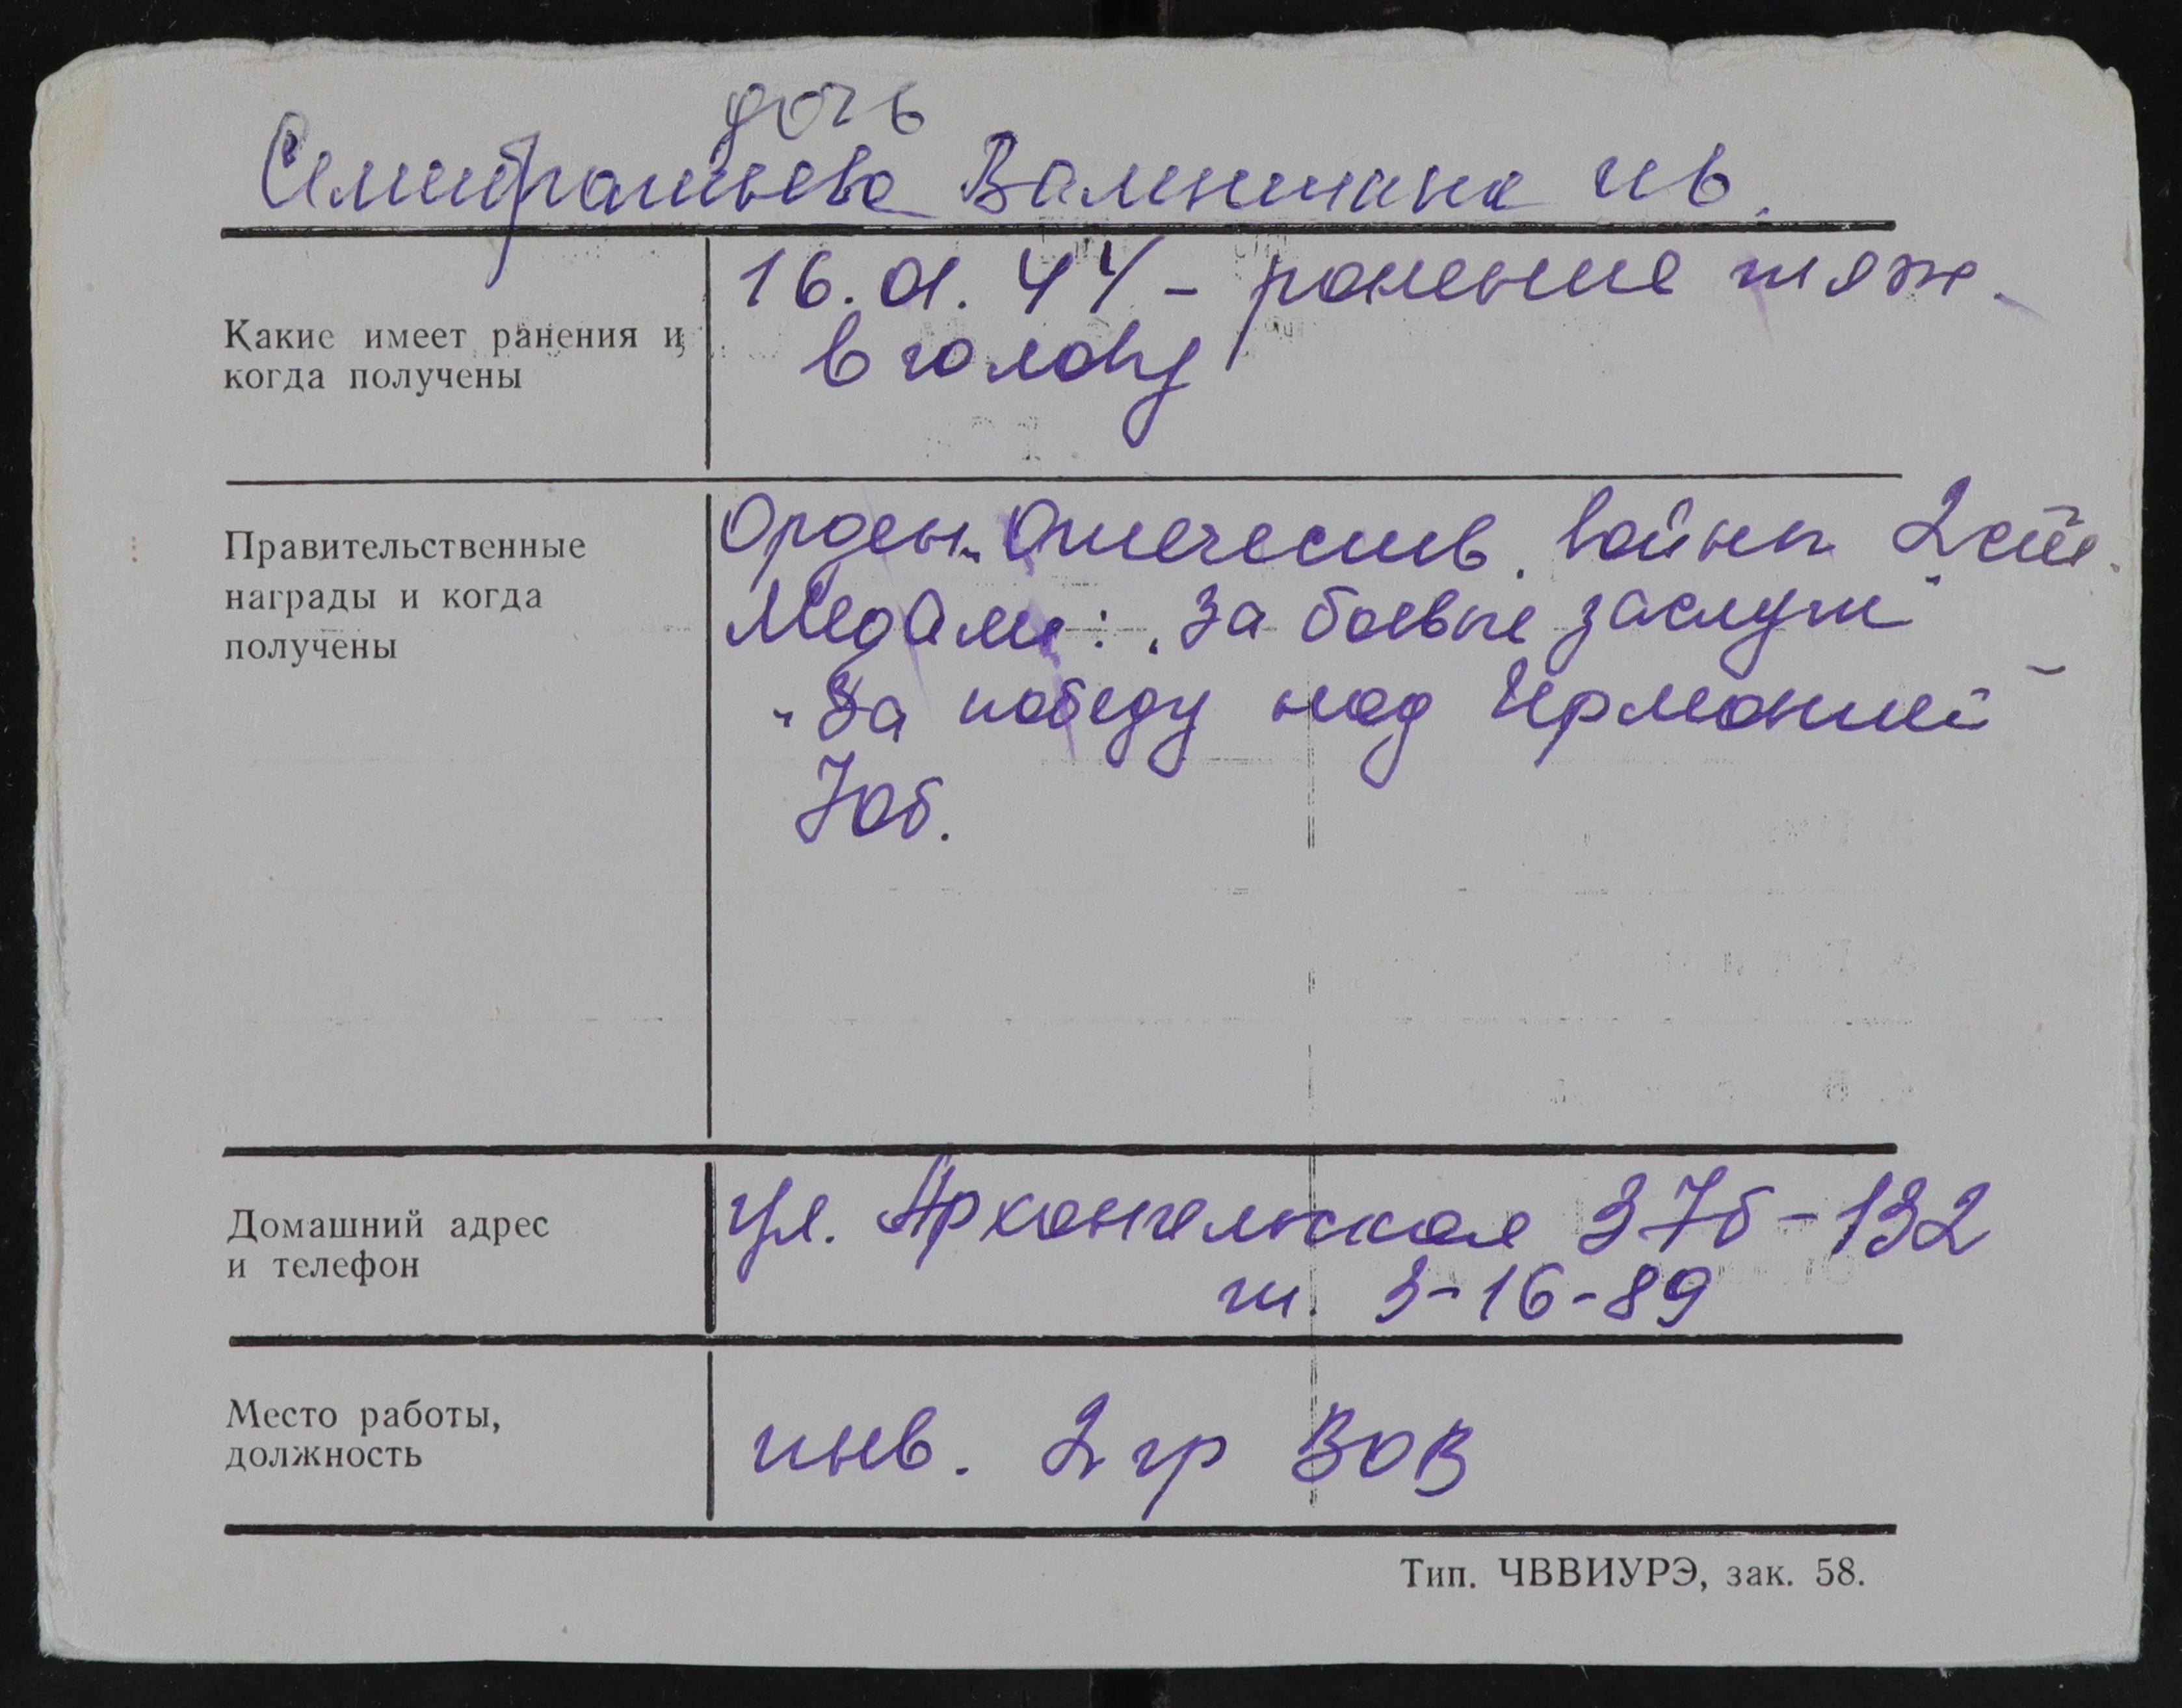 дочь
Семибратьева Валентина Ив.
Какие имеет ранения и
когда получены
16.01.44 - ранение тяж.
в голову
Правительственные
награды и когда
получены
Орден Отечеств. войны 2 ст.
Медали: „За боевые заслуги"
„За победу над Германией"
Юб.
Домашний адрес
и телефон
ул. Архангельская 37б-132
т. 3-16-89
Место работы,
должность
инв. 2 гр ВОВ
Тип. ЧВВИУРЭ, зак. 58.